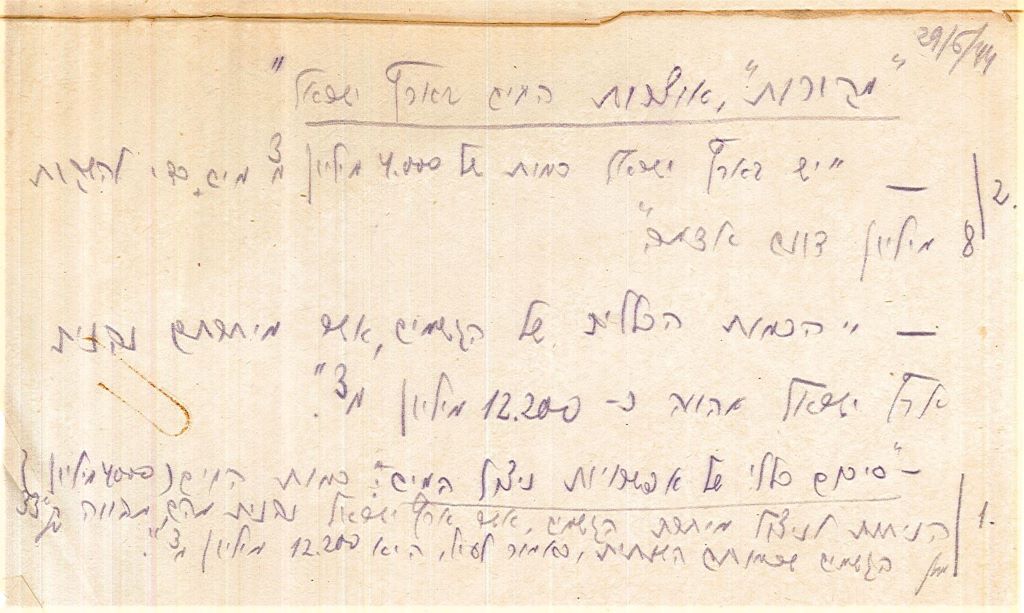 29/6/44
"מקורות", אוצרות המים בארץ ישראל"
2. — "יש בארץ ישראל כמות של 4.000 מיליון מ3 מים, כדי להשקות
8 מיליון דונם אדמה"
— "הכמות הכללית של הגשמים, אשר מימיהם נהנית
ארץ ישראל מהווה כ- 12.200 מיליון מ3".
— "סיכום כללי של אפשרויות ניצול המים": כמות המים (4000 מיליון)
1. הניתנת לניצול מימות הגשמים, אשר ארץ ישראל נהנית מהם, מהווה 33%
מן הגשמים שכמותם השנתית, כאמור לעיל, היא 12.200 מיליון מ3".